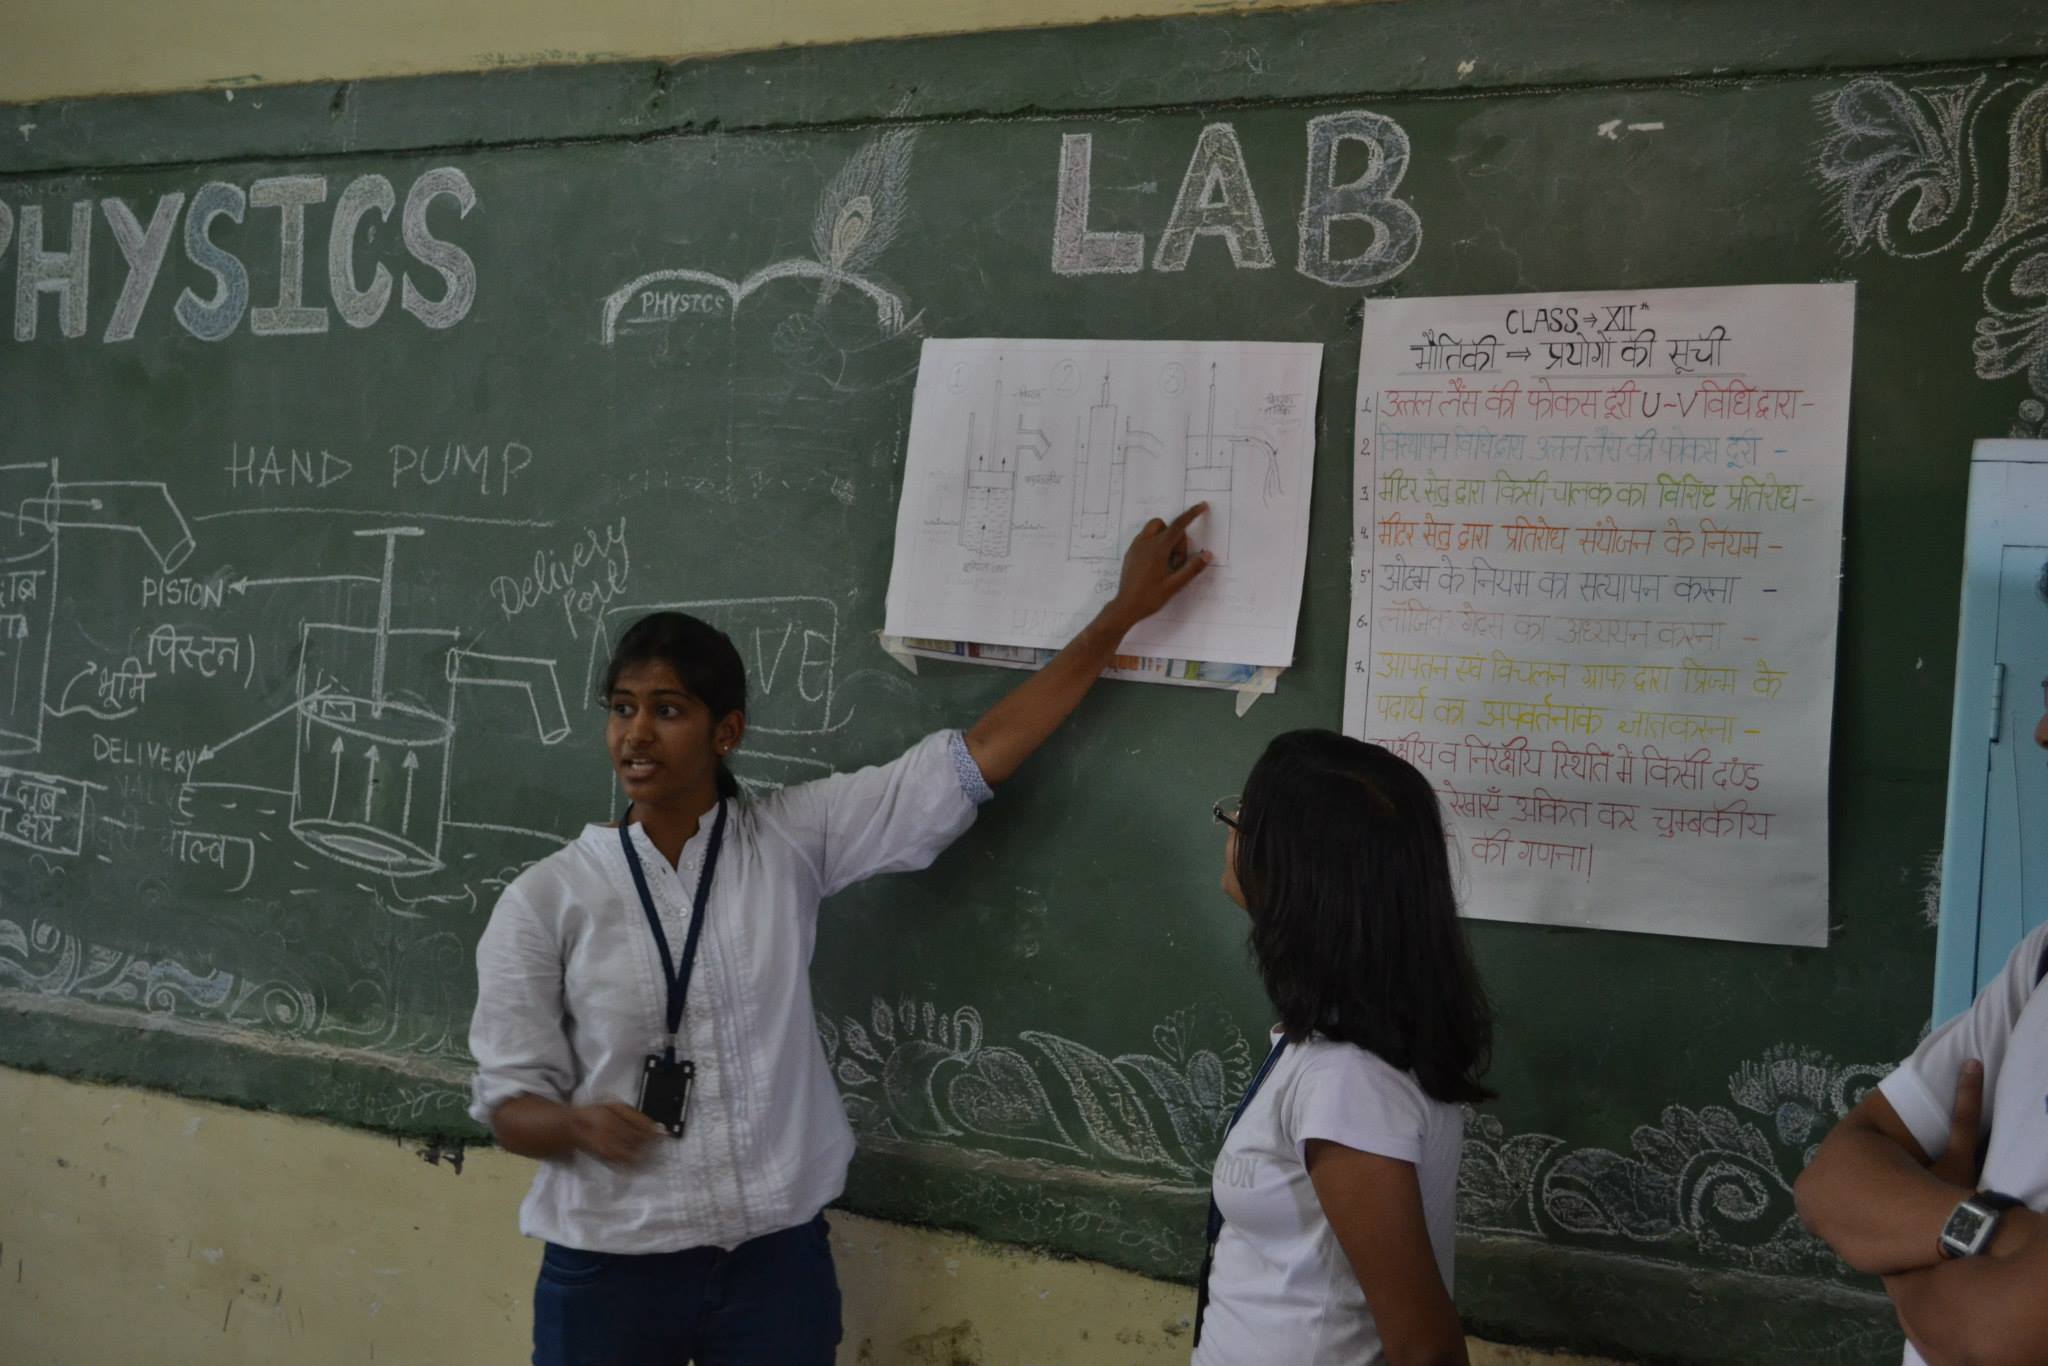 PHYSICS LAB
PHYSICS
HAND PUMP
PISTON
(पिस्टन)
भूमि
DELIVERY
VALVE
वाल्व)
Delivery
Port
दाब
दाब
क्षेत्र
VE
1 2 3
CLASS ⇒ XII th
भौतिकी ⇒ प्रयोगों की सूची
1. उत्तल लैंस की फोकस दूरी U-V विधि द्वारा-
2. विस्थापन विधि द्वारा उत्तल लैंस की फोकस दूरी -
3. मीटर सेतु द्वारा किसी चालक का विशिष्ट प्रतिरोध-
4. मीटर सेतु द्वारा प्रतिरोध संयोजन के नियम -
5. ओह्म के नियम का सत्यापन करना -
6. लॉजिक गेट्स का अध्ययन करना -
7. आपतन एवं विचलन ग्राफ द्वारा प्रिज्म के
पदार्थ का अपवर्तनांक ज्ञात करना -
व निरक्षीय स्थिति में किसी दण्ड
रेखाएँ अंकित कर चुम्बकीय
की गणना।